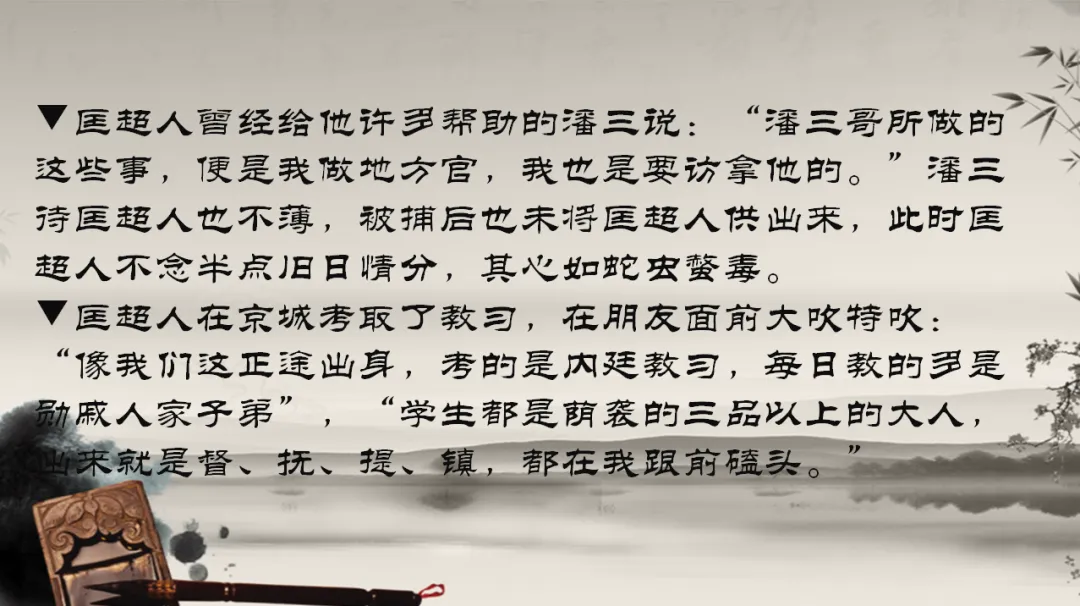 ▼匡超人曾经给他许多帮助的潘三说：“潘三哥所做的
这些事，便是我做地方官，我也是要访拿他的。”潘三
待匡超人也不薄，被捕后也未将匡超人供出来，此时匡
超人不念半点旧日情分，其心如蛇虫螫毒。
▼匡超人在京城考取了教习，在朋友面前大吹特吹：
“像我们这正途出身，考的是内廷教习，每日教的多是
勋戚人家子弟”，“学生都是荫袭的三品以上的大人，
出来就是督、抚、提、镇，都在我跟前磕头。”